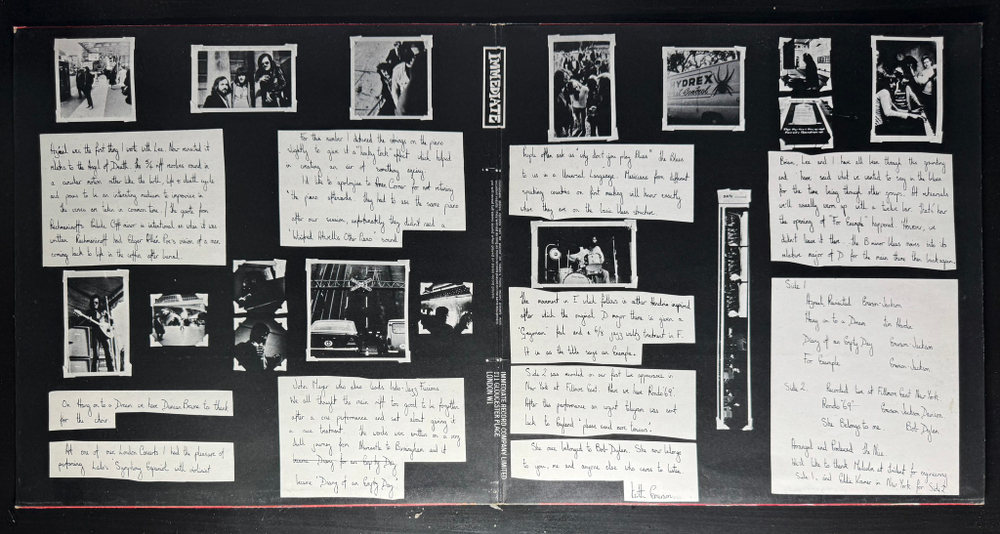 IMMEDIATE
HYDREX
Pest Control
Azrael was the first thing I wrote with Lee. Now reworked it
relates to the Angel of Death. The 5/4 riff revolves round in
a circular motion rather like the birth, life & death cycle
and proves to be an interesting medium to improvise in
the verses are taken in common time / the quote from
Rachmaninoff's Prelude C♯ minor is intentional as when it was
written Rachmaninoff had Edgar Allan Poe's vision of a man
coming back to life in the coffin after burial.
For this number I detuned the strings on the piano
slightly to give it a "honky tonk" effect which helped
in creating an air of something
I'd like to apologise to for not retuning
the piano afterwards. They had to use the same piano
after our session, unfortunately they didn't need a
"Winifred Atwell's Other Piano" sound
People often ask us "why don't you play Blues" the Blues
to us is a Universal Language. Musicians from different
speaking countries on first meeting will know exactly
where they are on the basic blues structure.
Brian, Lee and I have all been through this grounding
and have said what we wanted to say in the blues
for the time being through other groups. At rehearsals
we'll usually warm up with a twelve bar. That's how
the opening of "For Example" happened. However, we
didn't leave it there. The B minor blues moves into its
relative major of D for the main theme then back again.
the movement in E which follows is rather inspired
after which the original D major theme is given a
feel and a 4/4 jazz waltz treatment in F.
It is as the title says an Example.
On Hang on to a Dream we have Duncan Browne to thank
for the choir.
At one of our London Concerts I had the pleasure of
performing Lalo's Symphony Espanol with violinist
John Mayer who also leads Indo-Jazz Fusions.
We all thought the main riff too good to be forgotten
after one performance and set about giving it
a nice treatment. The words were written on a very
dull journey from Newcastle to Birmingham and it
became Diary for an Empty Day
became "Diary of an Empty Day"
Side 2 was recorded on our first live appearance in
New York at Fillmore East. Here we have Rondo '69'.
After this performance an urgent telegram was sent
back to England "please send more trousers".
She once belonged to Bob Dylan. She now belongs
to you, me and anyone else who cares to listen.
Keith Emerson
Side 1
Azrael Revisited Emerson-Jackson
Hang on to a Dream Tim Hardin
Diary of an Empty Day Emerson-Jackson
For Example Emerson-Jackson
Side 2. Recorded Live at Fillmore East New York
Rondo '69'. Emerson Jackson Davison
She Belongs to Me. Bob Dylan
Arranged and Produced The Nice
We'd like to thank Malcolm at Trident for engineering
Side 1. and Eddie Kramer in New York for Side 2
IMMEDIATE RECORD COMPANY LIMITED
111 GLOUCESTER PLACE
LONDON W1